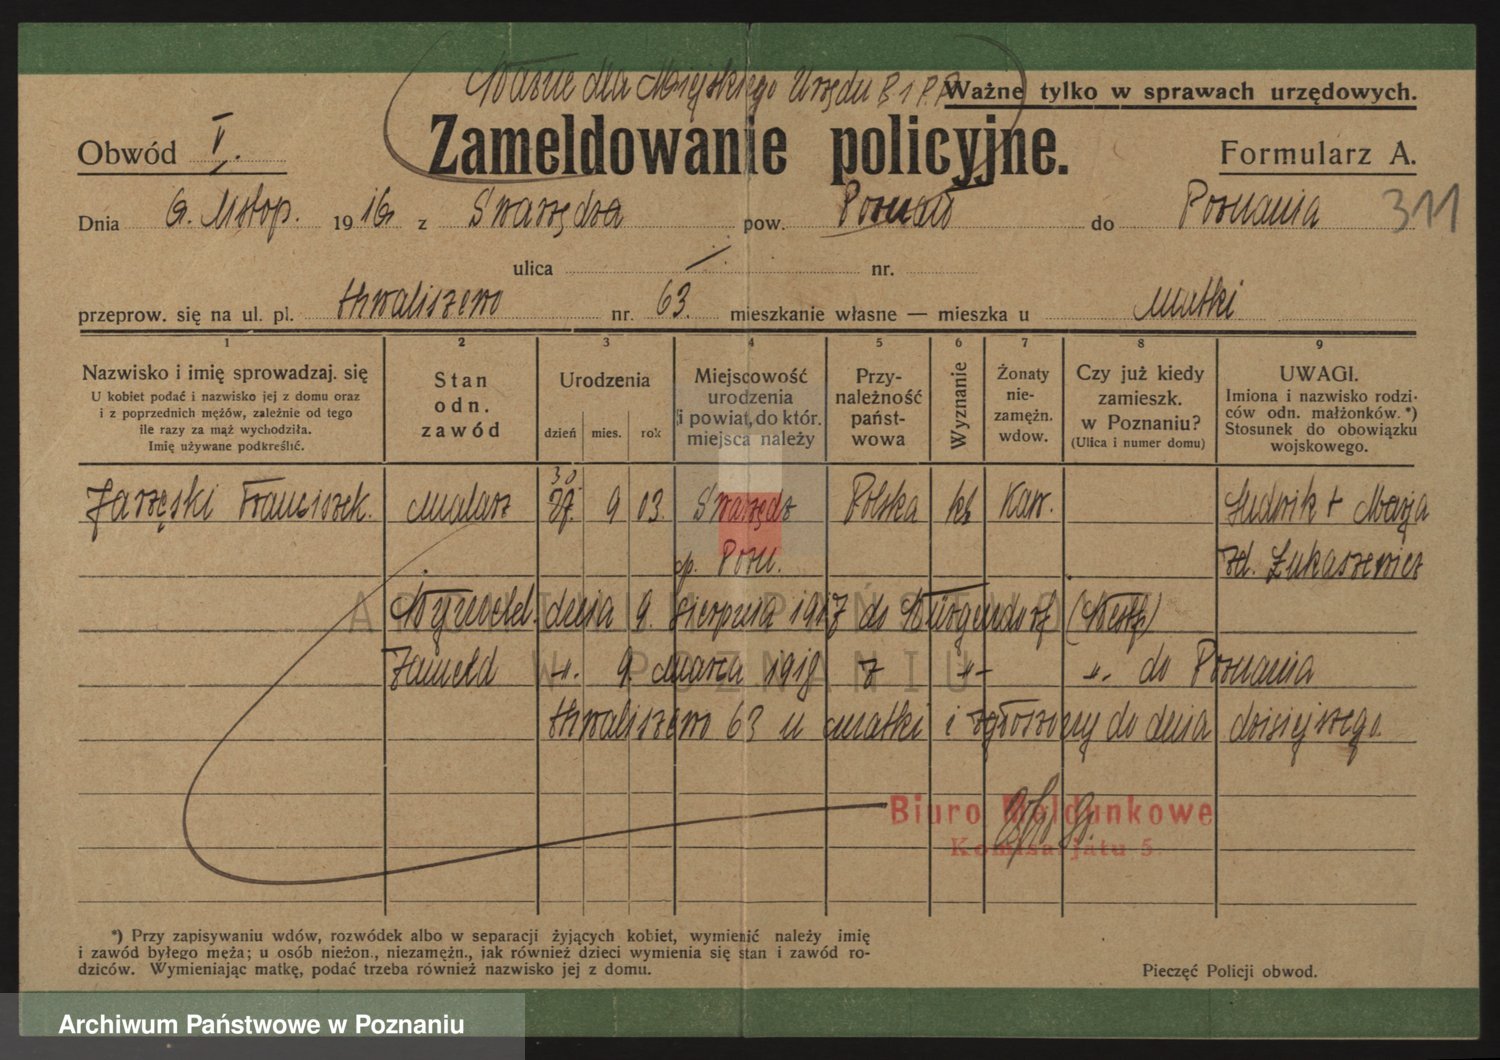 Ważne dla Miejskiego Urzędu
Ważne tylko w sprawach urzędowych.
Obwód V.
Zameldowanie policyjne.
Formularz A.
Dnia 6. Listop. 1916 z Swarzędza pow. Poznań do Poznania 311
ulica — nr.
przeprow. się na ul. pl. Chwaliszewo nr. 63. mieszkanie własne — mieszka u matki
1 2 3 4 5 6 7 8 9
Nazwisko i imię sprowadzaj. się
U kobiet podać i nazwisko jej z domu oraz
i z poprzednich mężów, zależnie od tego
ile razy za mąż wychodziła.
Imię używane podkreślić.
Stan
odn.
zawód
Urodzenia
dzień mies. rok
Miejscowość
urodzenia
i powiat, do któr.
miejsca należy
Przy-
należność
państ-
wowa
Wyznanie
Żonaty
nie-
zamężn.
wdow.
Czy już kiedy
zamieszk.
w Poznaniu?
(Ulica i numer domu)
UWAGI.
Imiona i nazwisko rodzi-
ców odn. małżonków.*)
Stosunek do obowiązku
wojskowego.
30
Jarzęski Franciszek. malarz 9 03. Swarzędz Polska kt Kaw. Ludwik + Marja
p. Pozn. zd. Łukaszewicz
Wymeld. dnia 9. sierpnia 1917 do (Westf)
Zameld „. 9. marca 1918 z „- „. do Poznania
Chwaliszewo 63 u matki i zgłoszony do dnia dzisiejszego.
Biuro Meldunkowe
Komisarjatu 5.
*) Przy zapisywaniu wdów, rozwódek albo w separacji żyjących kobiet, wymienić należy imię
i zawód byłego męża; u osób nieżon., niezamężn., jak również dzieci wymienia się stan i zawód ro-
dziców. Wymieniając matkę, podać trzeba również nazwisko jej z domu.
Pieczęć Policji obwod.
ARCHIWUM PAŃSTWOWE
W POZNANIU
Archiwum Państwowe w Poznaniu